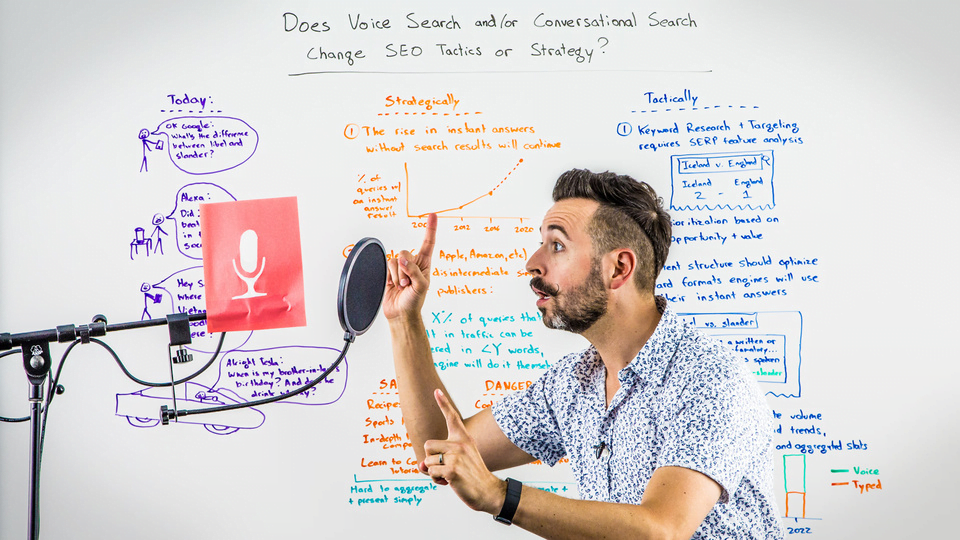 Does Voice Search and/or Conversational Search
Change SEO Tactics or Strategy?
Today:
OK Google:
What's the difference
between libel and
slander?
Alexa:
Did
beat
in t
soc
Hey S
where
Vietna
here
Alright Tesla:
When is my brother-in-law's
birthday? And does
drink
Strategically
1 The rise in instant answers
without search results will continue
% of
queries w/
an instant
answer
result
2012 2016 2020
Apple, Amazon, etc
disintermediate
publishers:
X% of queries that
in traffic can be
ered in <Y words,
engine will do it themse
SA
DANGER
Recipe
Sports
In-depth
comp
Learn to Co
tutoria
Hard to aggregate
+ present simply
Tactically
1 Keyword Research + Targeting
requires SERP feature analysis
Iceland v. England
Iceland England
2 - 1
rioritization based on
pportunity + value
ent structure should optimize
ard formats engines will use
heir instant answers
vs. slander
a written or
famatory...
s spoken
slander
te volume
d trends,
and aggregated stats
Voice
Typed
2022